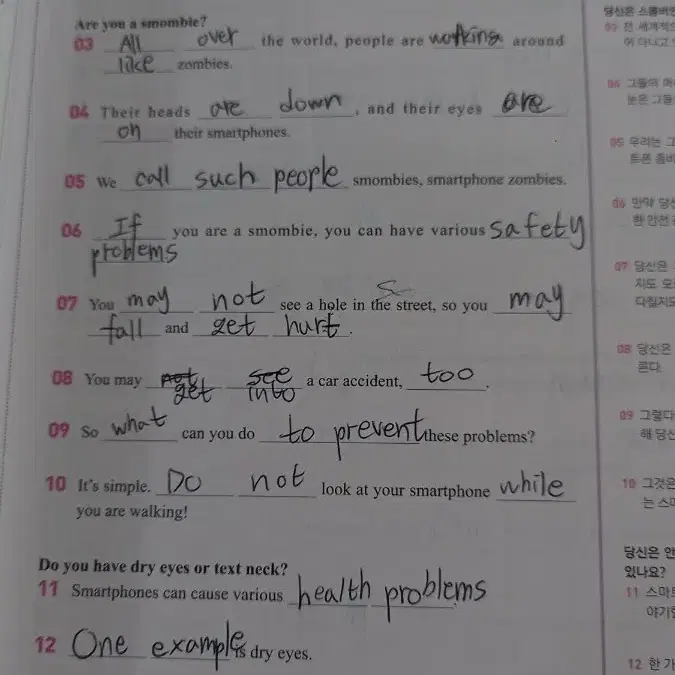 Are you a smombie?
03 All over the world, people are walking around
like zombies.
04 Their heads are down, and their eyes are
on their smartphones.
05 We call such people smombies, smartphone zombies.
06 If you are a smombie, you can have various safety
problems
07 You may not see a hole in the street, so you may
fall and get hurt.
08 You may get into a car accident, too.
09 So what can you do to prevent these problems?
10 It's simple. Do not look at your smartphone while
you are walking!
Do you have dry eyes or text neck?
11 Smartphones can cause various health problems.
12 One example is dry eyes.
당신은 스몸비인
03 전 세계적으
어 다니고
04 그들의 머
눈은 그들
05 우리는 그
트폰 좀비
06 만약 당신
한 안전
07 당신은
지도 모
다칠지도
08 당신은
른다.
09 그렇다
해 당신
10 그것은
는 스마
당신은 안
있나요?
11 스마트
야기할
12 한 가